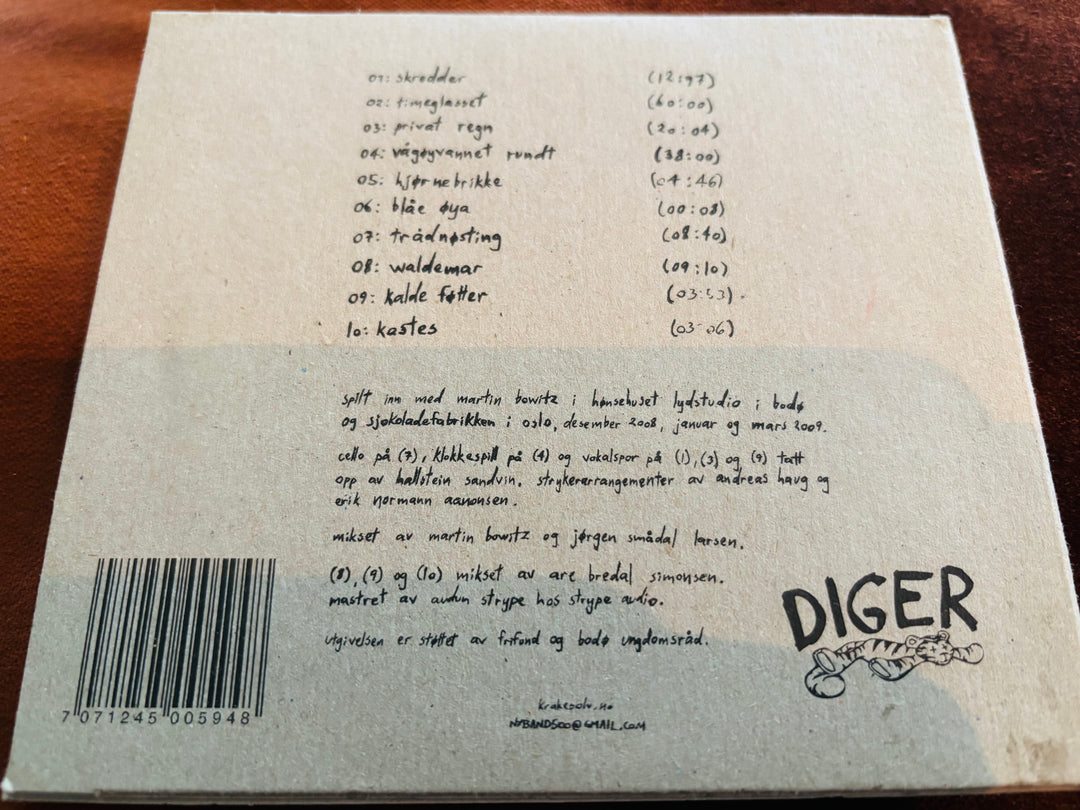 01: skredder (12:97)
02: timeglasset (60:00)
03: privat regn (20:04)
04: vågøyvannet rundt (38:00)
05: hjørnebrikke (04:46)
06: blåe øya (00:08)
07: trådnøsting (08:40)
08: waldemar (09:10)
09: kalde føtter (03:53)
10: kastes (03:06)
spilt inn med martin bowitz i hønsehuset lydstudio i bodø
og sjokoladefabrikken i oslo, desember 2008, januar og mars 2009.
cello på (7), klokkespill på (4) og vokalspor på (1), (3) og (9) tatt
opp av hallstein sandvin. strykerarrangementer av andreas haug og
erik normann aanonsen.
mikset av martin bowitz og jørgen smådal larsen.
(8), (9) og (10) mikset av are bredal simonsen.
mastret av audun strype hos strype audio.
utgivelsen er støttet av frifond og bodø ungdomsråd.
DIGER
krakesolv.no
7 071245 005948